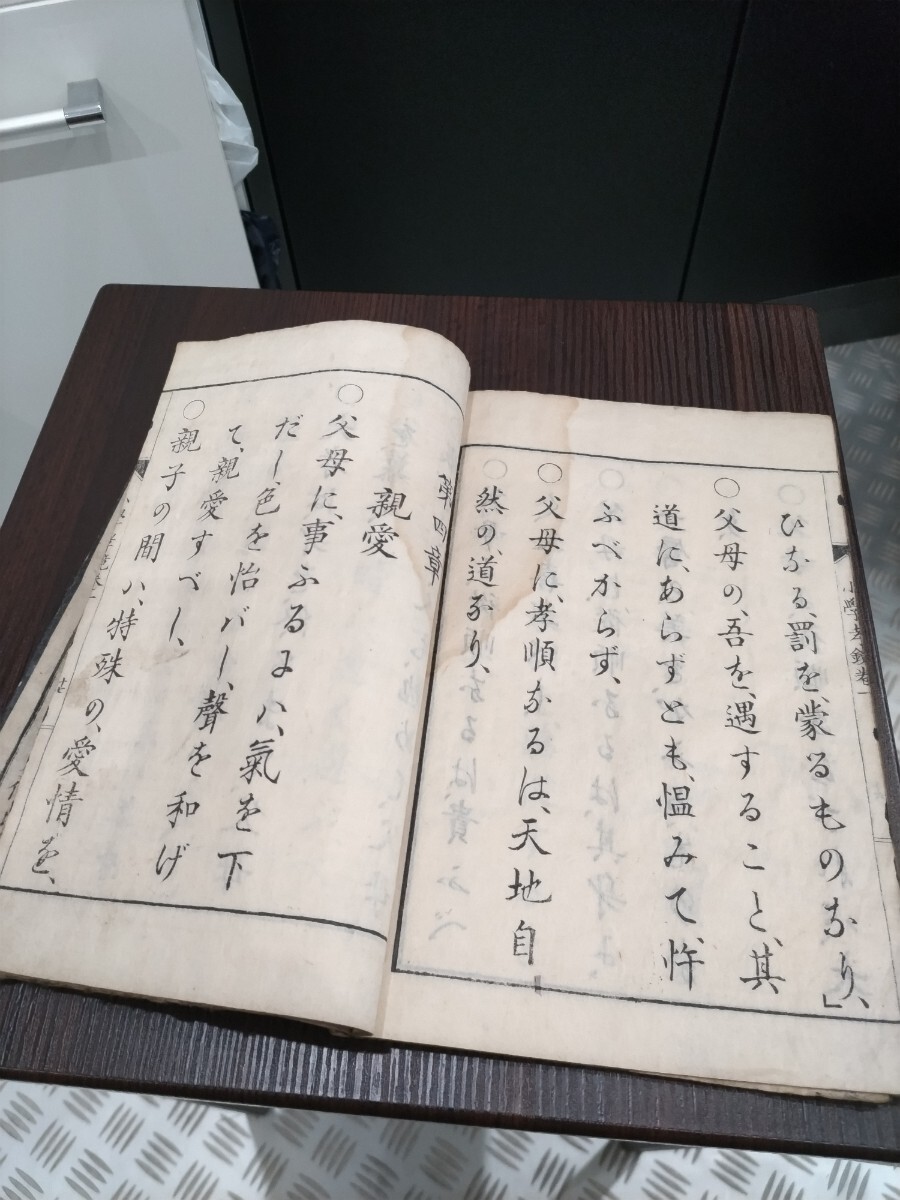 ひなる、罰を、蒙るものなり、」
○父母の、吾を、遇すること、其
道に、あらずとも、慍みて、忤
ふべからず、
○父母に、孝順なるは、天地自
然の、道なり、
第四章
親愛
○父母に、事ふるよハ、氣を下
だし、色を怡バし、聲を和げ
て、親愛すべし、
○親子の間ハ、特殊の、愛情を、